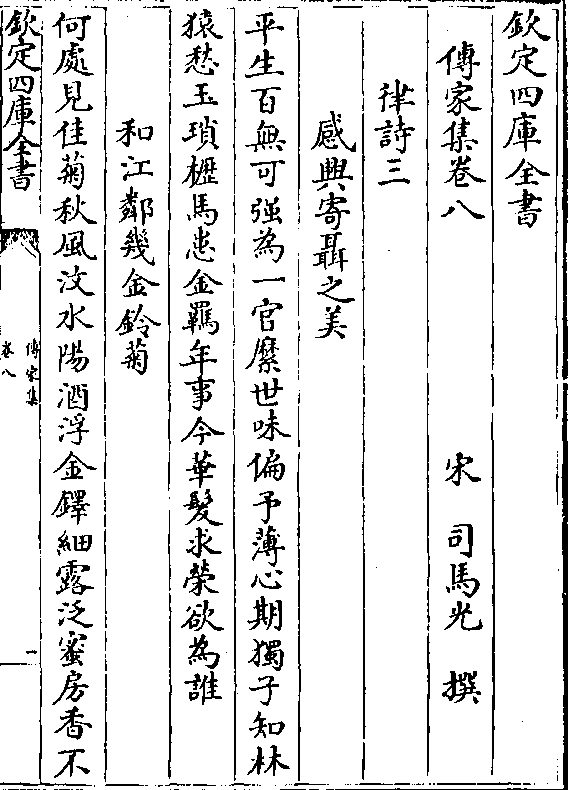 欽定四庫全書
傳家集卷八
宋 司馬光 撰
律詩三
感興寄聶之美
平生百無可强為一官縻世味偏予薄心期獨子知林
猿愁玉瑣櫪馬恚金羈年事今華髮求榮欲為誰
和江鄰幾金鈴菊
何處見佳菊秋風汶水陽酒浮金鐸細露泛蜜房香不
欽定四庫全書
傳家集
卷八
一